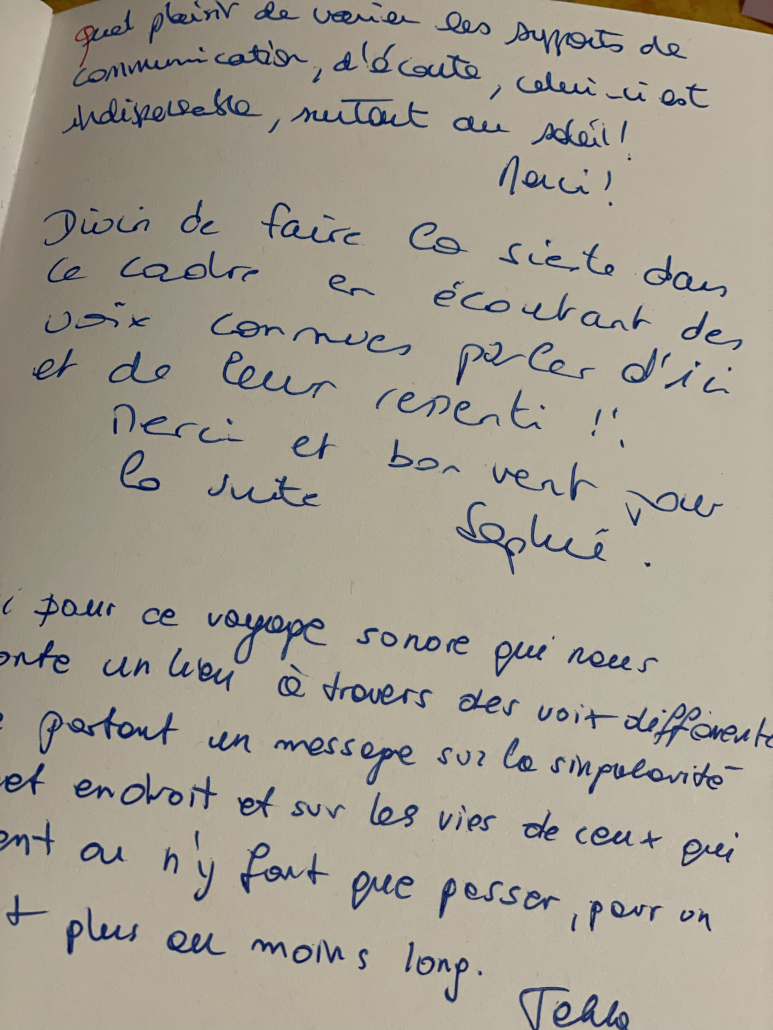 quel plaisir de varier les supports de
communication, d'écoute, celui-ci est
indispensable, surtout au soleil!
Merci!
Divin de faire la sieste dans
ce cadre en écoutant des
voix connues parler d'ici
et de leur ressenti !!
Merci et bon vent pour
la suite
Sophie.
i pour ce voyage sonore qui nous
onte un lieu à travers des voix différente
portant un message sur la singularité
et endroit et sur les vies de ceux qui
ent ou n'y font que passer, pour un
t plus ou moins long.